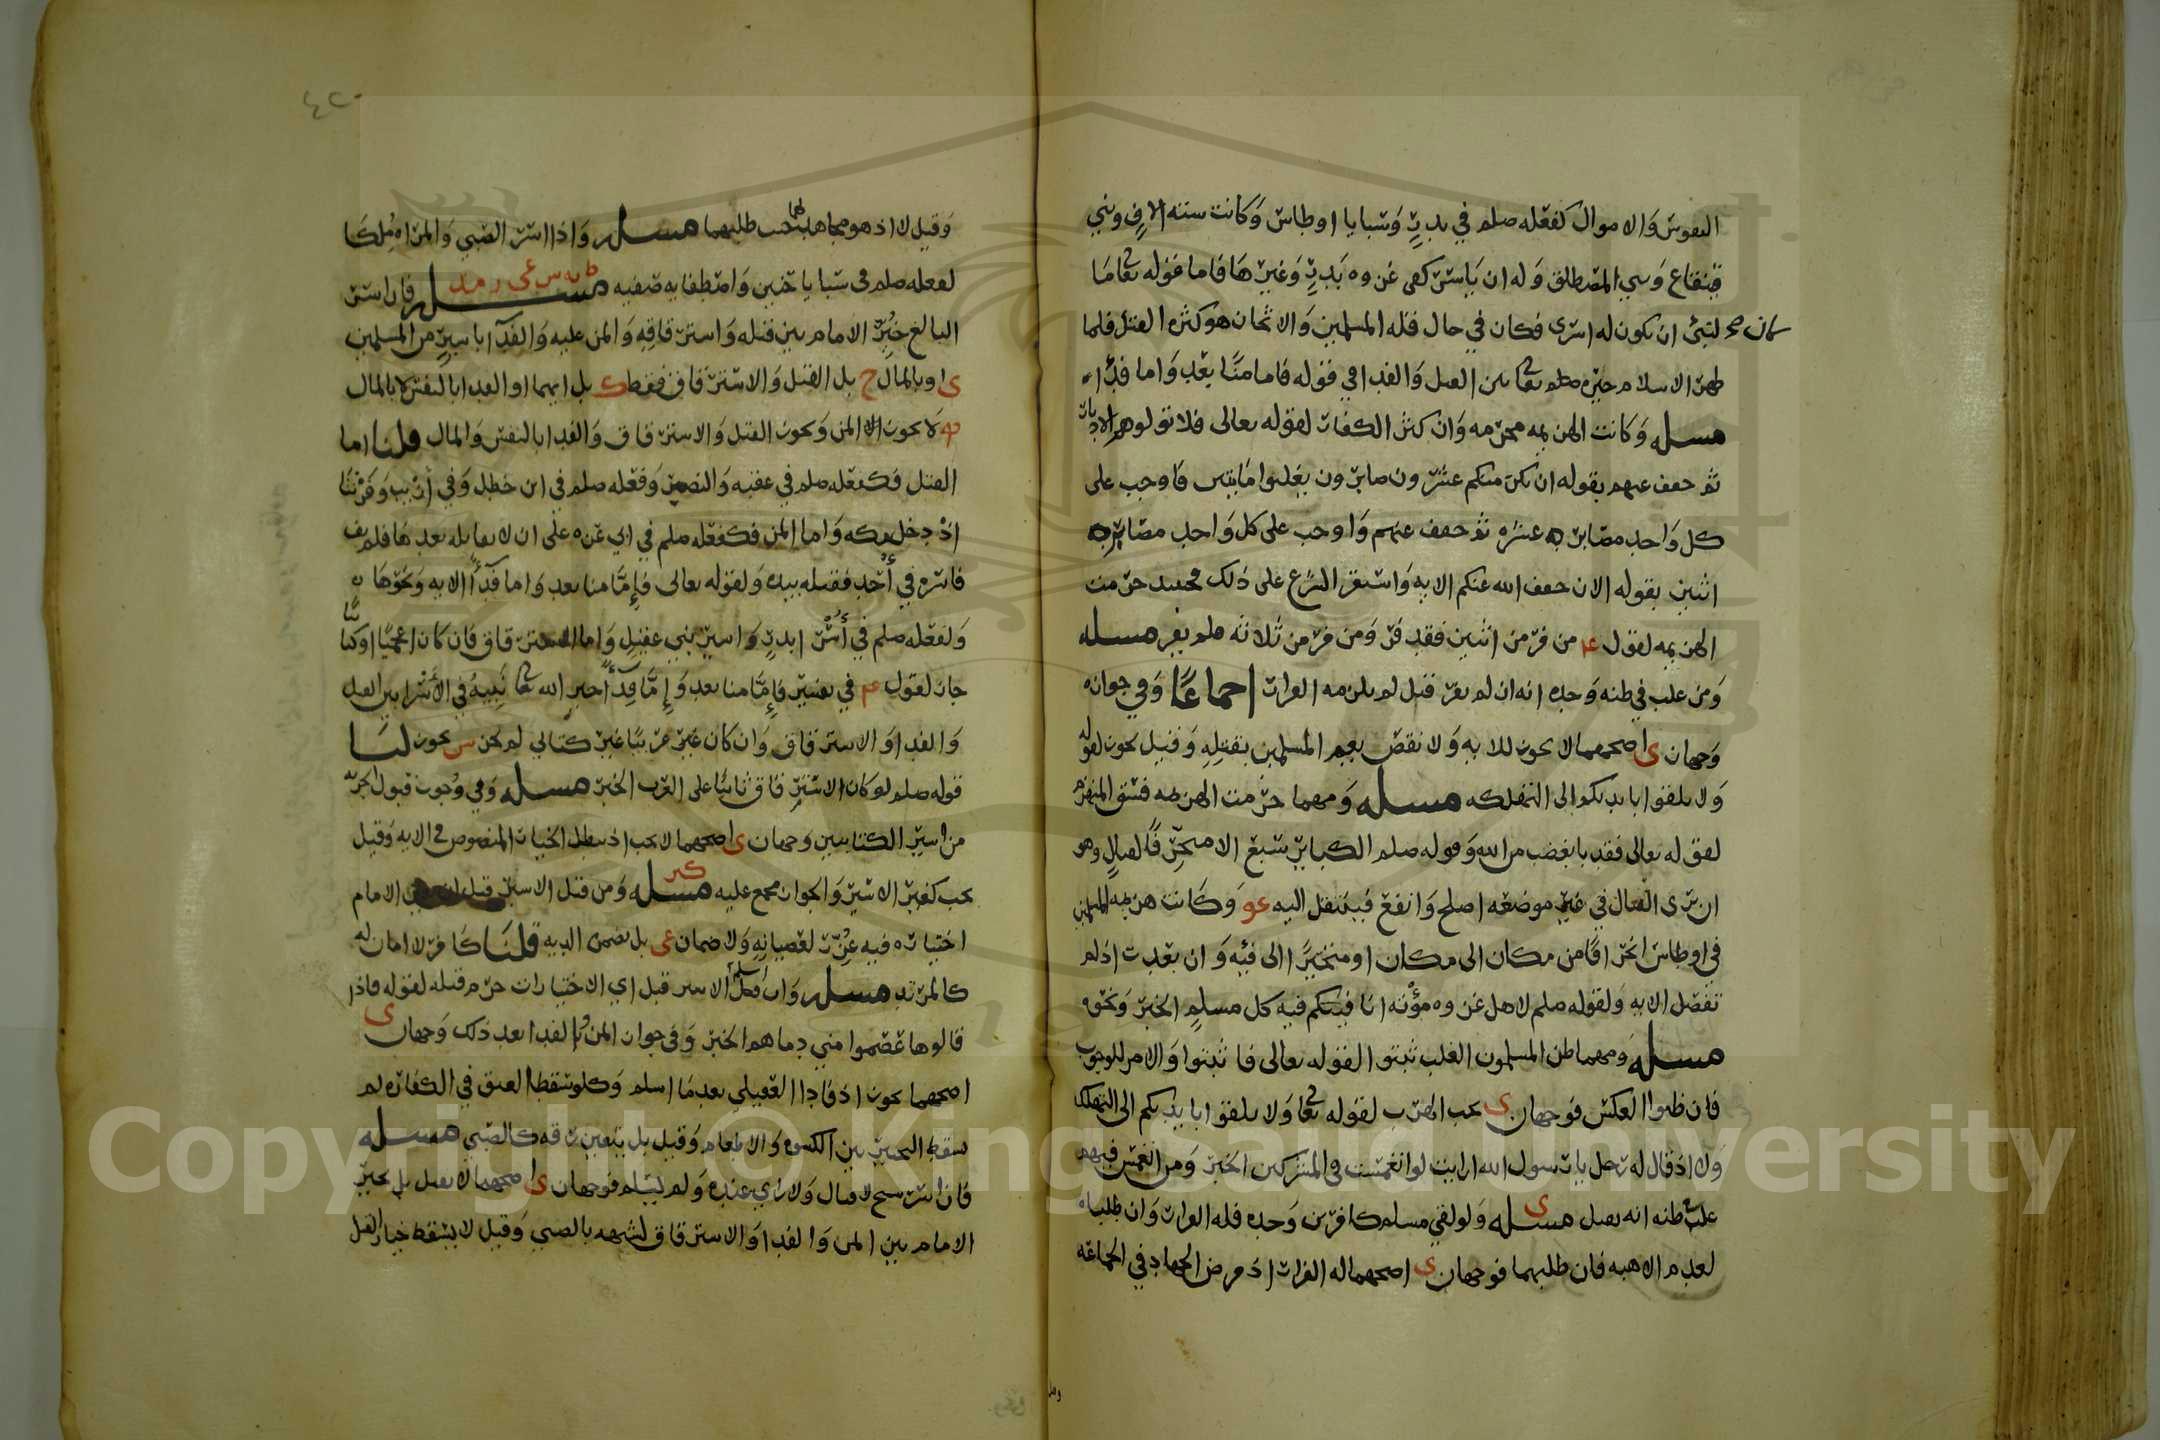 النفوس والاموال كفعله صلم في بدر وسبايا اوطاس وكانت ستة الاف وبني
قينقاع وبني المصطلق وله ان ياسر كفى غزوه بدر وغيرها فاما قوله تعا ما
كان صح لنبي ان يكون له اسرى فكان في حال قله المسلمين والاثخان هو كثره القتل فلما
ظهر الاسلام خيره صلم تعا بين القتل والفدا في قوله فاما منا بعد واما فداء
مسله وكانت الهزيمه محرمه وان كثر الكفار لقوله تعالى فلا تولوهم الادبار
ثم خفف عنهم بقوله ان يكن منكم عشرون صابرون يغلبوا مايتين فاوجب على
كل واحد مصابرة عشره ثم خفف عنهم واوجب على كل واحد مصابرة
اثنين بقوله الان خفف الله عنكم الايه واستقر الشرع على ذلك فحينئذ حرمت
الهزيمه لقول ع من فر من اثنين فقد فر ومن فر من ثلاثه فلم يفر مسله
ومن غلب في ظنه وحده انه ان لم يفر قتل لم يلزمه الفرار اجماعًا وفي جوازه
وجهان ى اصحهما لا يجوز للايه ولا نقص يعم المسلمين بقتله وقيل يجوز لقوله
ولا تلقوا بايديكم الى التهلكه مسله ومهما حرمت الهزيمه فسق المنهزم
لقوله تعالى فقد با بغضب من الله وقوله صلم الكباير سبع الا متحرفا لقتال وهو
ان يرى القتال في غير موضعه اصلح وانفع فينتقل اليه عو وكانت هزيمه المسلمين
في اوطاس انحرافا من مكان الى مكان او متحيزا الى فيه وان بعدت اذ لم
تفصل الايه ولقوله صلم لاهل غزوه مؤته انا فيتكم فيه كل مسلم الخبر ونحوه
مسله ومهما ظن المسلمون الغلب ثبتوا لقوله تعالى فاثبتوا والامر للوجوب
فان ظنوا العكس فوجهان ى يجب الهرب لقوله تعا ولا تلقوا بايديكم الى التهلكه
ولا اذ قال له رجل يا رسول الله ارايت لو انغمست في المشركين الخبر ومن انغمس فيهم
غلب ظنه انه يقتل ى مسله ولو لقي مسلم كافرين وحده فله الفرار وان طلباه
لعدم الاهبه فان طلبهما فوجهان ى اصحهما له الفرار اذ فرض الجهاد في الجماعه
وقيل لا اذ هو مجاهد لهما حيث طلبهما مسله واذا اسر الصبي والمراه ملكا
لفعله صلم في سبايا خيبر واصطفايه صفيه مسله فان اسر
البالغ خير الامام بين قتله واسترقاقه والمن عليه والفدا باسير من المسلمين
ى او بالمال ح بل القتل والاسترقاق فقط ك بل ايهما او الفدا بالنفس لا بالمال
لا يجوز الا المن ويجوز القتل والاسترقاق والفدا بالنفس والمال قلنا اما
القتل فكفعله صلم في عقبه والنضر وفعله صلم في ابن خطل وفي وفرتنا
اذ دخل مكه واما المن فكفعله صلم في ابي عزه على ان لا يقاتله بعدها فلم يف
فاسره في أحد فقتله بيده ولقوله تعالى فإما منا بعد واما فداً الايه ونحوها
ولفعله صلم في أسرى بدر واسير بني عقيل واما الاسترقاق فان كان اعجميا او كتابيا
جاز لقول ع في تفسير فإما منا بعد وإما فداً خير الله تعا نبيه في الأسرا بين القتل
والفدا والاسترقاق وان كان غير عربيا غير كتابي لم يجز س يجوز لنا
قوله صلم لو كان الاسترقاق ثابتا على العرب الخبر مسله وفي وجوب قبول الجزيه
من اسير الكتابيين وجهان ى اصحهما لا يجب اذ يبطل الخيار المنصوص في الايه وقيل
يجب كغير الاسير والجواز مجمع عليه مسله ومن قتل الاسير قبل الامام
اختياره فيه عزر لعصيانه ولا ضمان عى بل يضمن الديه قلنا كافر لا امان له
كالمرتد مسله وان اسلم الاسير قبل اي الاختيارات حرم قتله لقوله فاذا
قالوها عصموا مني دماهم الخبر وفي جواز المن والفدا بعد ذلك وجهان ى
اصحهما يجوز اذ فادا العقيلي بعد ما اسلم وكلو سقط العتق في الكفاره لم
يسقط التخيير بين الكسوه والاطعام وقيل بل يتعين رقه كالصبي مسله
فان اسر شيخ لا قتال ولا راي عنده ولم يسلم فوجهان ى اصحهما لا يقتل بل يخير
الامام بين المن والفدا والاسترقاق لشبهه بالصبي وقيل لا يسقط خيار القتل